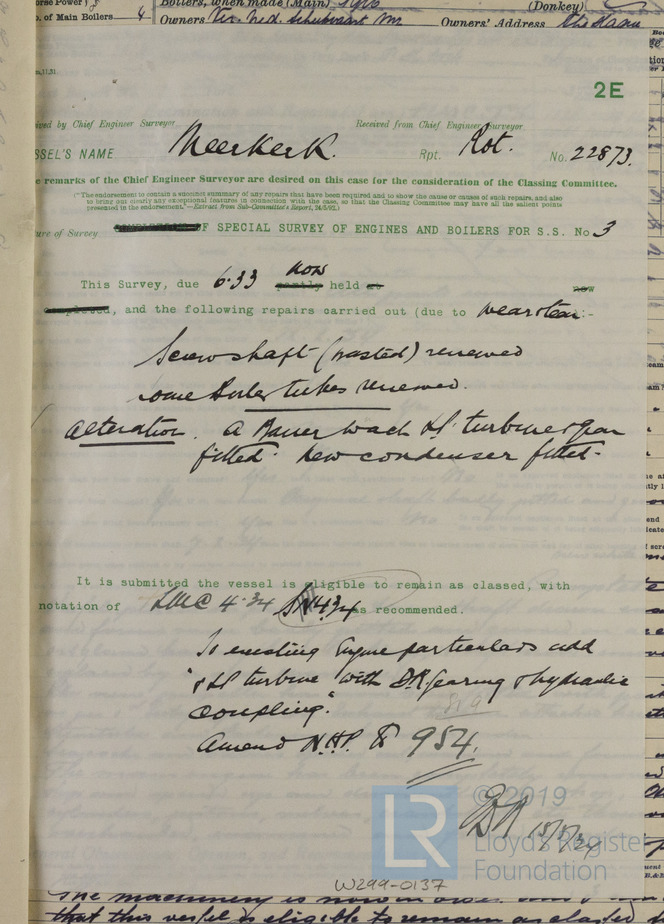 orse Power)
Boilers, when made (Main) 1916 (Donkey)
o. of Main Boilers. 4 Owners Owners' Address
2E
ived by Chief Engineer Surveyor Received from Chief Engineer Surveyor
SSEL'S NAME Meerkerk. Rpt. Rot. No. 22873.
e remarks of the Chief Engineer Surveyor are desired on this case for the consideration of the Classing Committee.
("The endorsement to contain a succinct summary of any repairs that have been required and to show the cause or causes of such repairs, and also
to bring out clearly any exceptional features in connection with the case, so that the Classing Committee may have all the salient points
presented in the endorsement."—Extract from Sub-Committee's Report, 24/5/92.)
ture of Survey OF SPECIAL SURVEY OF ENGINES AND BOILERS FOR S.S. No 3
now
This Survey, due 6.33 partly held at now
completed, and the following repairs carried out (due to wear & tear:-
Screwshaft (wasted) renewed
some boiler tubes renewed.
Alteration. a Bauer Wach LP turbine & gear
fitted. New condenser fitted.
It is submitted the vessel is eligible to remain as classed, with
notation of LMC 4.34 as recommended.
To existing Engine particulars add
"& LP turbine with DR gearing & hydraulic
coupling."
Amend N.H.P. to 954.
15/5/34
LR
© 2019
Lloyd's Register
Foundation
W299-0137
The machinery is now in
that this vessel is eligible to remain as classed